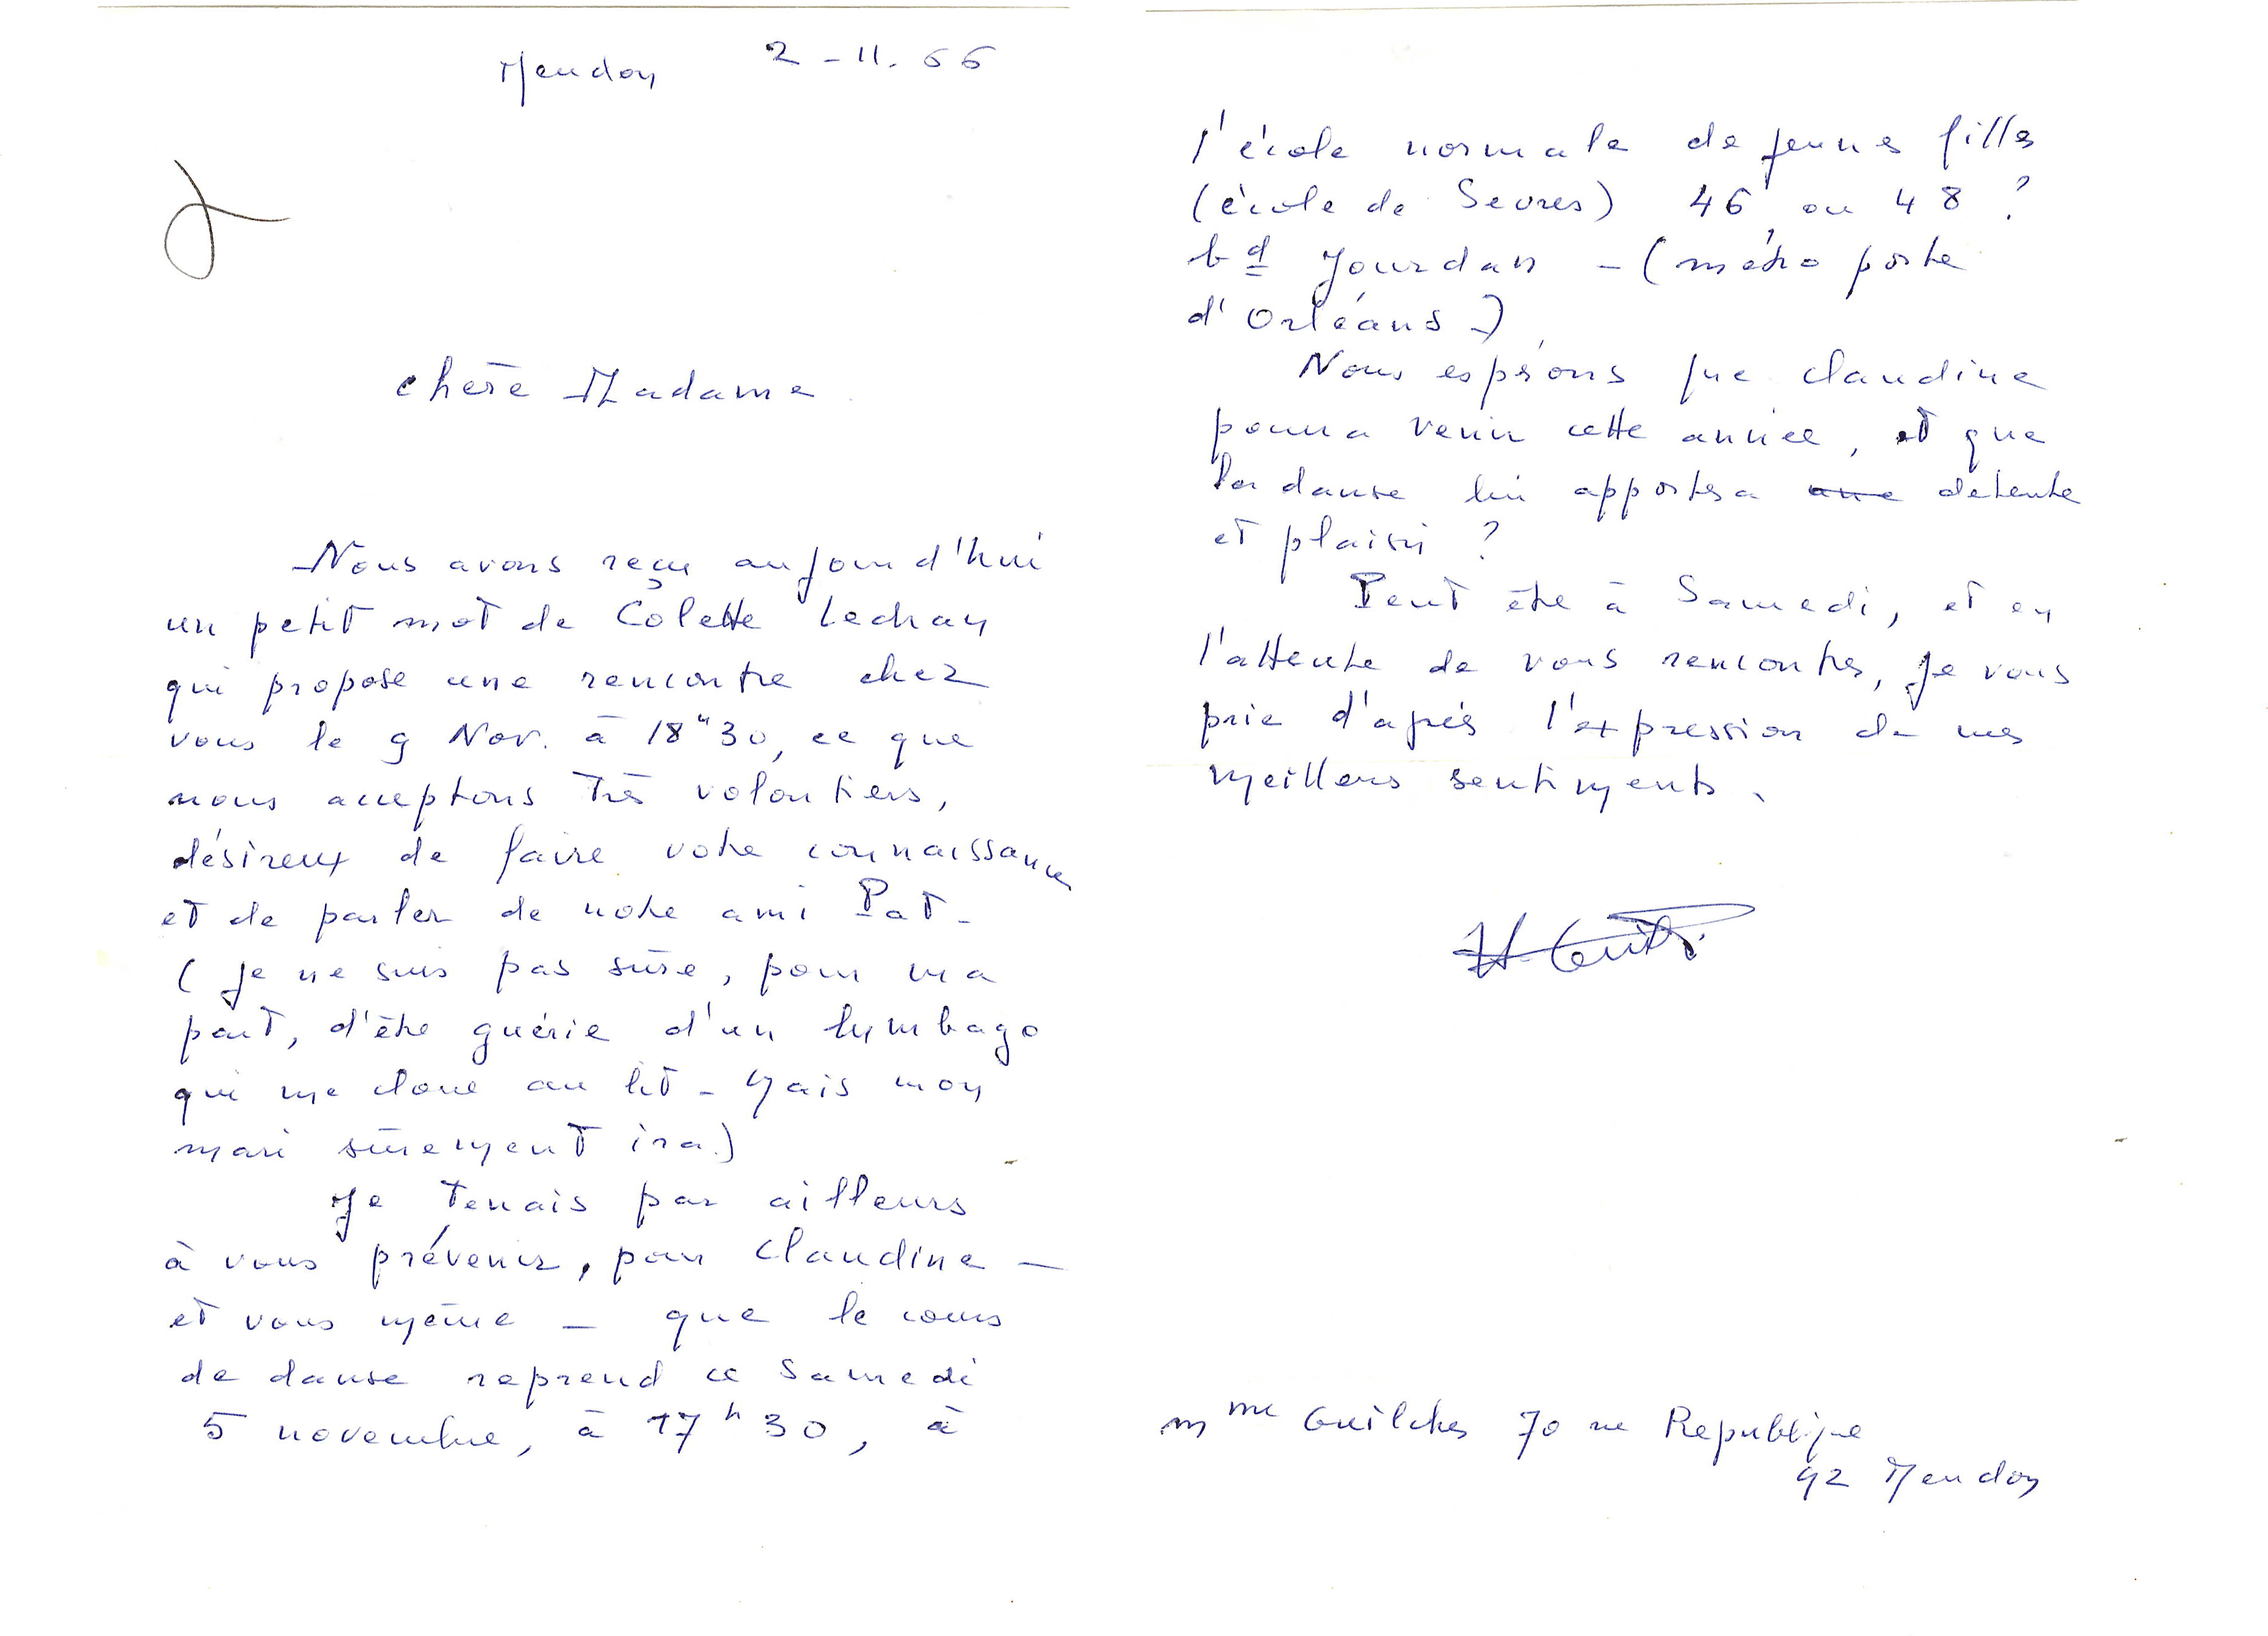 Meudon 2 - 11. 66
Chère Madame
Nous avons reçu aujourd'hui
un petit mot de Colette Lechay
qui propose une rencontre chez
vous le 9 Nov. à 18h30, ce que
nous acceptons très volontiers,
désireux de faire votre connaissance
et de parler de notre ami Pat -
( je ne suis pas sûre, pour ma
part, d'être guérie d'un lumbago
qui me cloue au lit - Mais mon
mari sûrement ira.)
Je tenais par ailleurs
à vous prévenir, pour Claudine -
et vous même - que le cours
de danse reprend ce Samedi
5 novembre, à 17h30, à
l'école normale de jeunes filles
(école de Sevres) 46 ou 48 ?
bd Jourdan - (métro porte
d'Orléans -)
Nous espérons que Claudine
pourra venir cette année, et que
la danse lui apportera une detente
et plaisir ?
Peut être à Samedi, et en
l'attente de vous rencontrer, je vous
prie d'agréer l'expression de mes
meilleurs sentiments.
Mme Guilcher 70 rue Republique
92 Meudon